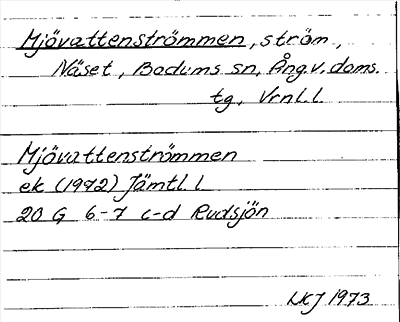 Mjövattenströmmen, ström,
Näset, Bodums sn, Ång.v. doms.
tg, Vrnl. l.
Mjövattenströmmen
ek (1972) Jämtl. l
20 G 6-7 c-d Rudsjön
1973